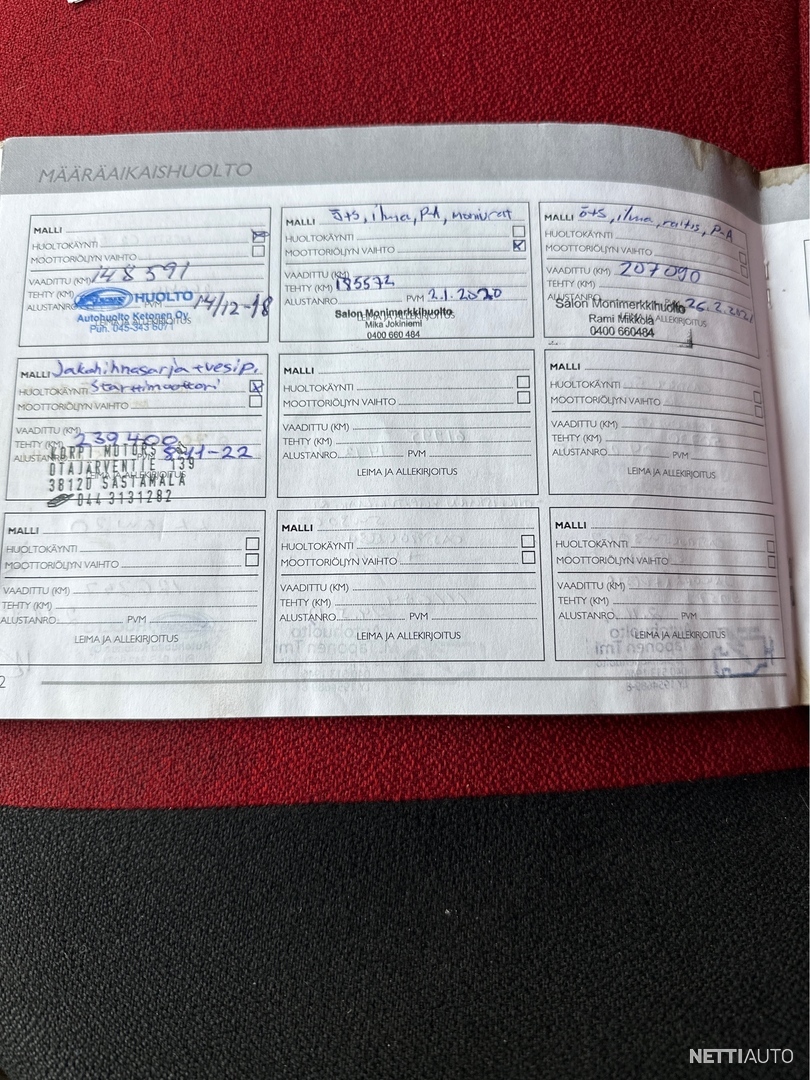 MÄÄRÄAIKAISHUOLTO
MALLI
HUOLTOKÄYNTI
MOOTTORIÖLJYN VAIHTO
VAADITTU (KM)
148 591
TEHTY (KM)
ALUSTANRO
PVM
14/12-18
HUOLTO
Autohuolto Ketonen Oy
Puh. 045-343 6071
MALLI ö+s, ilma, P-A, moniurat
HUOLTOKÄYNTI
MOOTTORIÖLJYN VAIHTO
VAADITTU (KM)
TEHTY (KM) 185572
ALUSTANRO. PVM 2.1.2020
Salon Monimerkkihuolto
LEIMA JA ALLEKIRJOITUS
Mika Jokiniemi
0400 660 484
MALLI ö+s, ilma, raitis, P-A
HUOLTOKÄYNTI
MOOTTORIÖLJYN VAIHTO
VAADITTU (KM) 207090
TEHTY (KM)
ALUSTANRO 26.2.2021
Salon Monimerkkihuolto
Rami Mikkola
LEIMA JA ALLEKIRJOITUS
0400 660484
MALLI Jakohihnasarja + vesip.
HUOLTOKÄYNTI Starttimoottori
MOOTTORIÖLJYN VAIHTO
VAADITTU (KM)
TEHTY (KM) 239400
ALUSTANRO 8-11-22
KORPI MOTORS
OTAJARVENTIE 139
38120 SASTAMALA
044 3131282
MALLI
HUOLTOKÄYNTI
MOOTTORIÖLJYN VAIHTO
VAADITTU (KM)
TEHTY (KM)
ALUSTANRO. PVM
LEIMA JA ALLEKIRJOITUS
MALLI
HUOLTOKÄYNTI
MOOTTORIÖLJYN VAIHTO
VAADITTU (KM)
TEHTY (KM)
ALUSTANRO. PVM
LEIMA JA ALLEKIRJOITUS
MALLI
HUOLTOKÄYNTI
MOOTTORIÖLJYN VAIHTO
VAADITTU (KM)
TEHTY (KM)
ALUSTANRO. PVM
LEIMA JA ALLEKIRJOITUS
MALLI
HUOLTOKÄYNTI
MOOTTORIÖLJYN VAIHTO
VAADITTU (KM)
TEHTY (KM)
ALUSTANRO. PVM
LEIMA JA ALLEKIRJOITUS
MALLI
HUOLTOKÄYNTI
MOOTTORIÖLJYN VAIHTO
VAADITTU (KM)
TEHTY (KM)
ALUSTANRO. PVM
LEIMA JA ALLEKIRJOITUS
2
NETTIAUTO